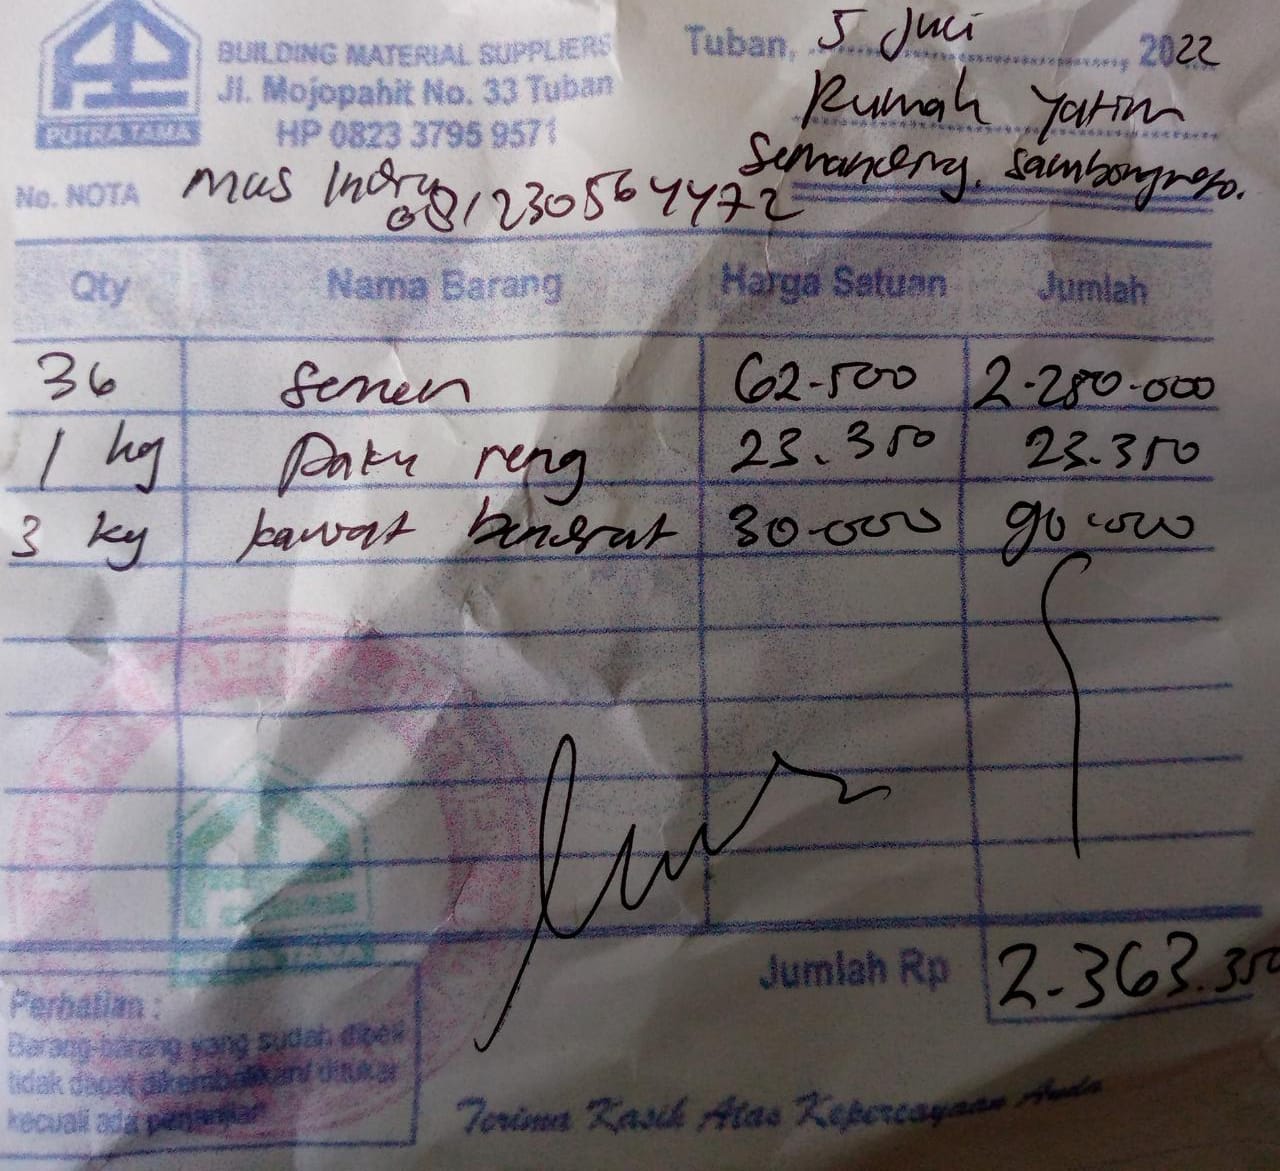 PUTRA TAMA
BUILDING MATERIAL SUPPLIERS
Jl. Mojopahit No. 33 Tuban
HP 0823 3795 9571
Tuban, 5 Juli 2022
Rumah Yatim
Semanding. Sambongrejo.
No. NOTA Mas Indra
081230564472
Qty Nama Barang Harga Satuan Jumlah
36 Semen 62.500 2.250.000
1 kg Paku reng 23.350 23.350
3 kg kawat bendrat 30.000 90.000
Jumlah Rp 2.363.350
Perhatian :
Barang-barang yang sudah dibeli
tidak dapat dikembalikan/ ditukar
kecuali ada perjanjian
Terima Kasih Atas Kepercayaan Anda